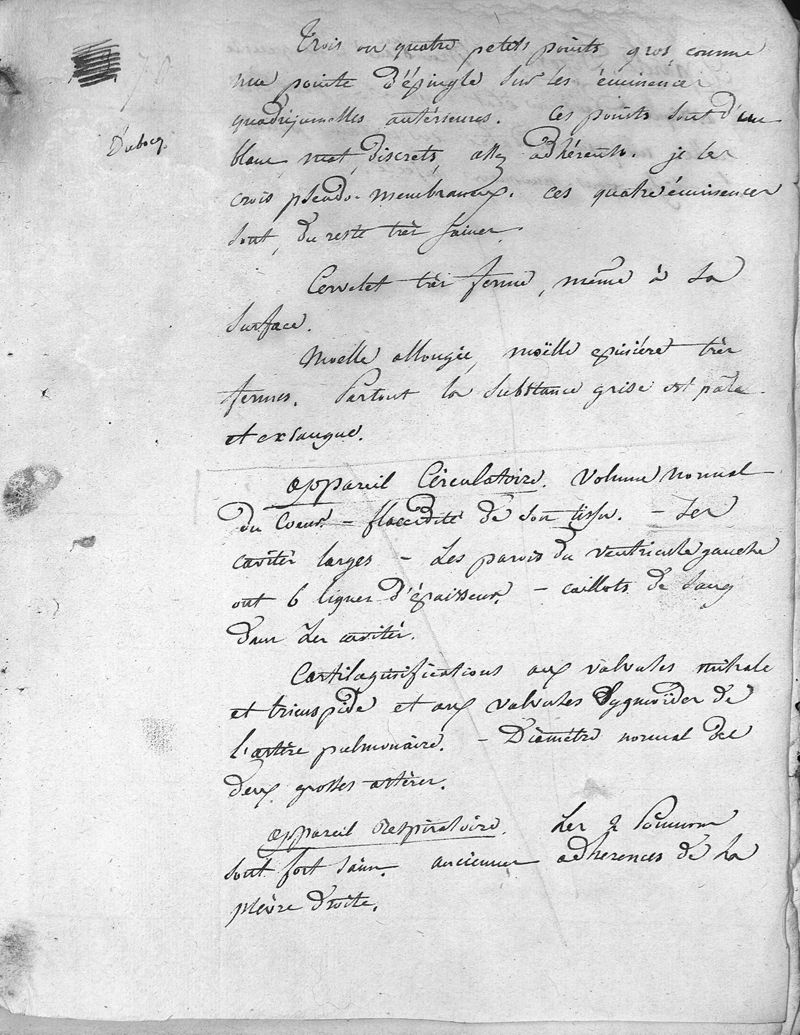 Trois ou quatre petits points gros comme
une pointe d'épingle sur les éminences
quadrijumelles antérieures. Ces points sont d'un
blanc mat, discrets, assez adhérents. je les
crois pseudo-membraneux. Ces quatre éminences
sont, du reste très saines.
Dubocq.
Cervelet très ferme, même à sa
surface.
Moëlle allongée, moëlle épinière très
fermes. Partout la substance grise est pâle
et exsangue.
appareil Circulatoire. Volume normal
du Coeur. – flaccidité de son tissu. – Les
cavités larges – Les parois du ventricule gauche
ont 6 lignes d'épaisseur. – caillots de sang
dans Les cavités.
Cartilaginifications aux valvules mitrale
et tricuspide et aux valvules Sygmoïdes de
l'artère pulmonaire. – Diamètre normal des
deux grosses artères.
appareil Respiratoire. Les 2 Poumons
sont fort sains. anciennes adhérences de la
plèvre droite.